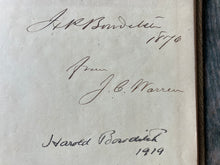 H. P. Bowditch
1876
from
J. C. Warren
Harold Bowditch
1919